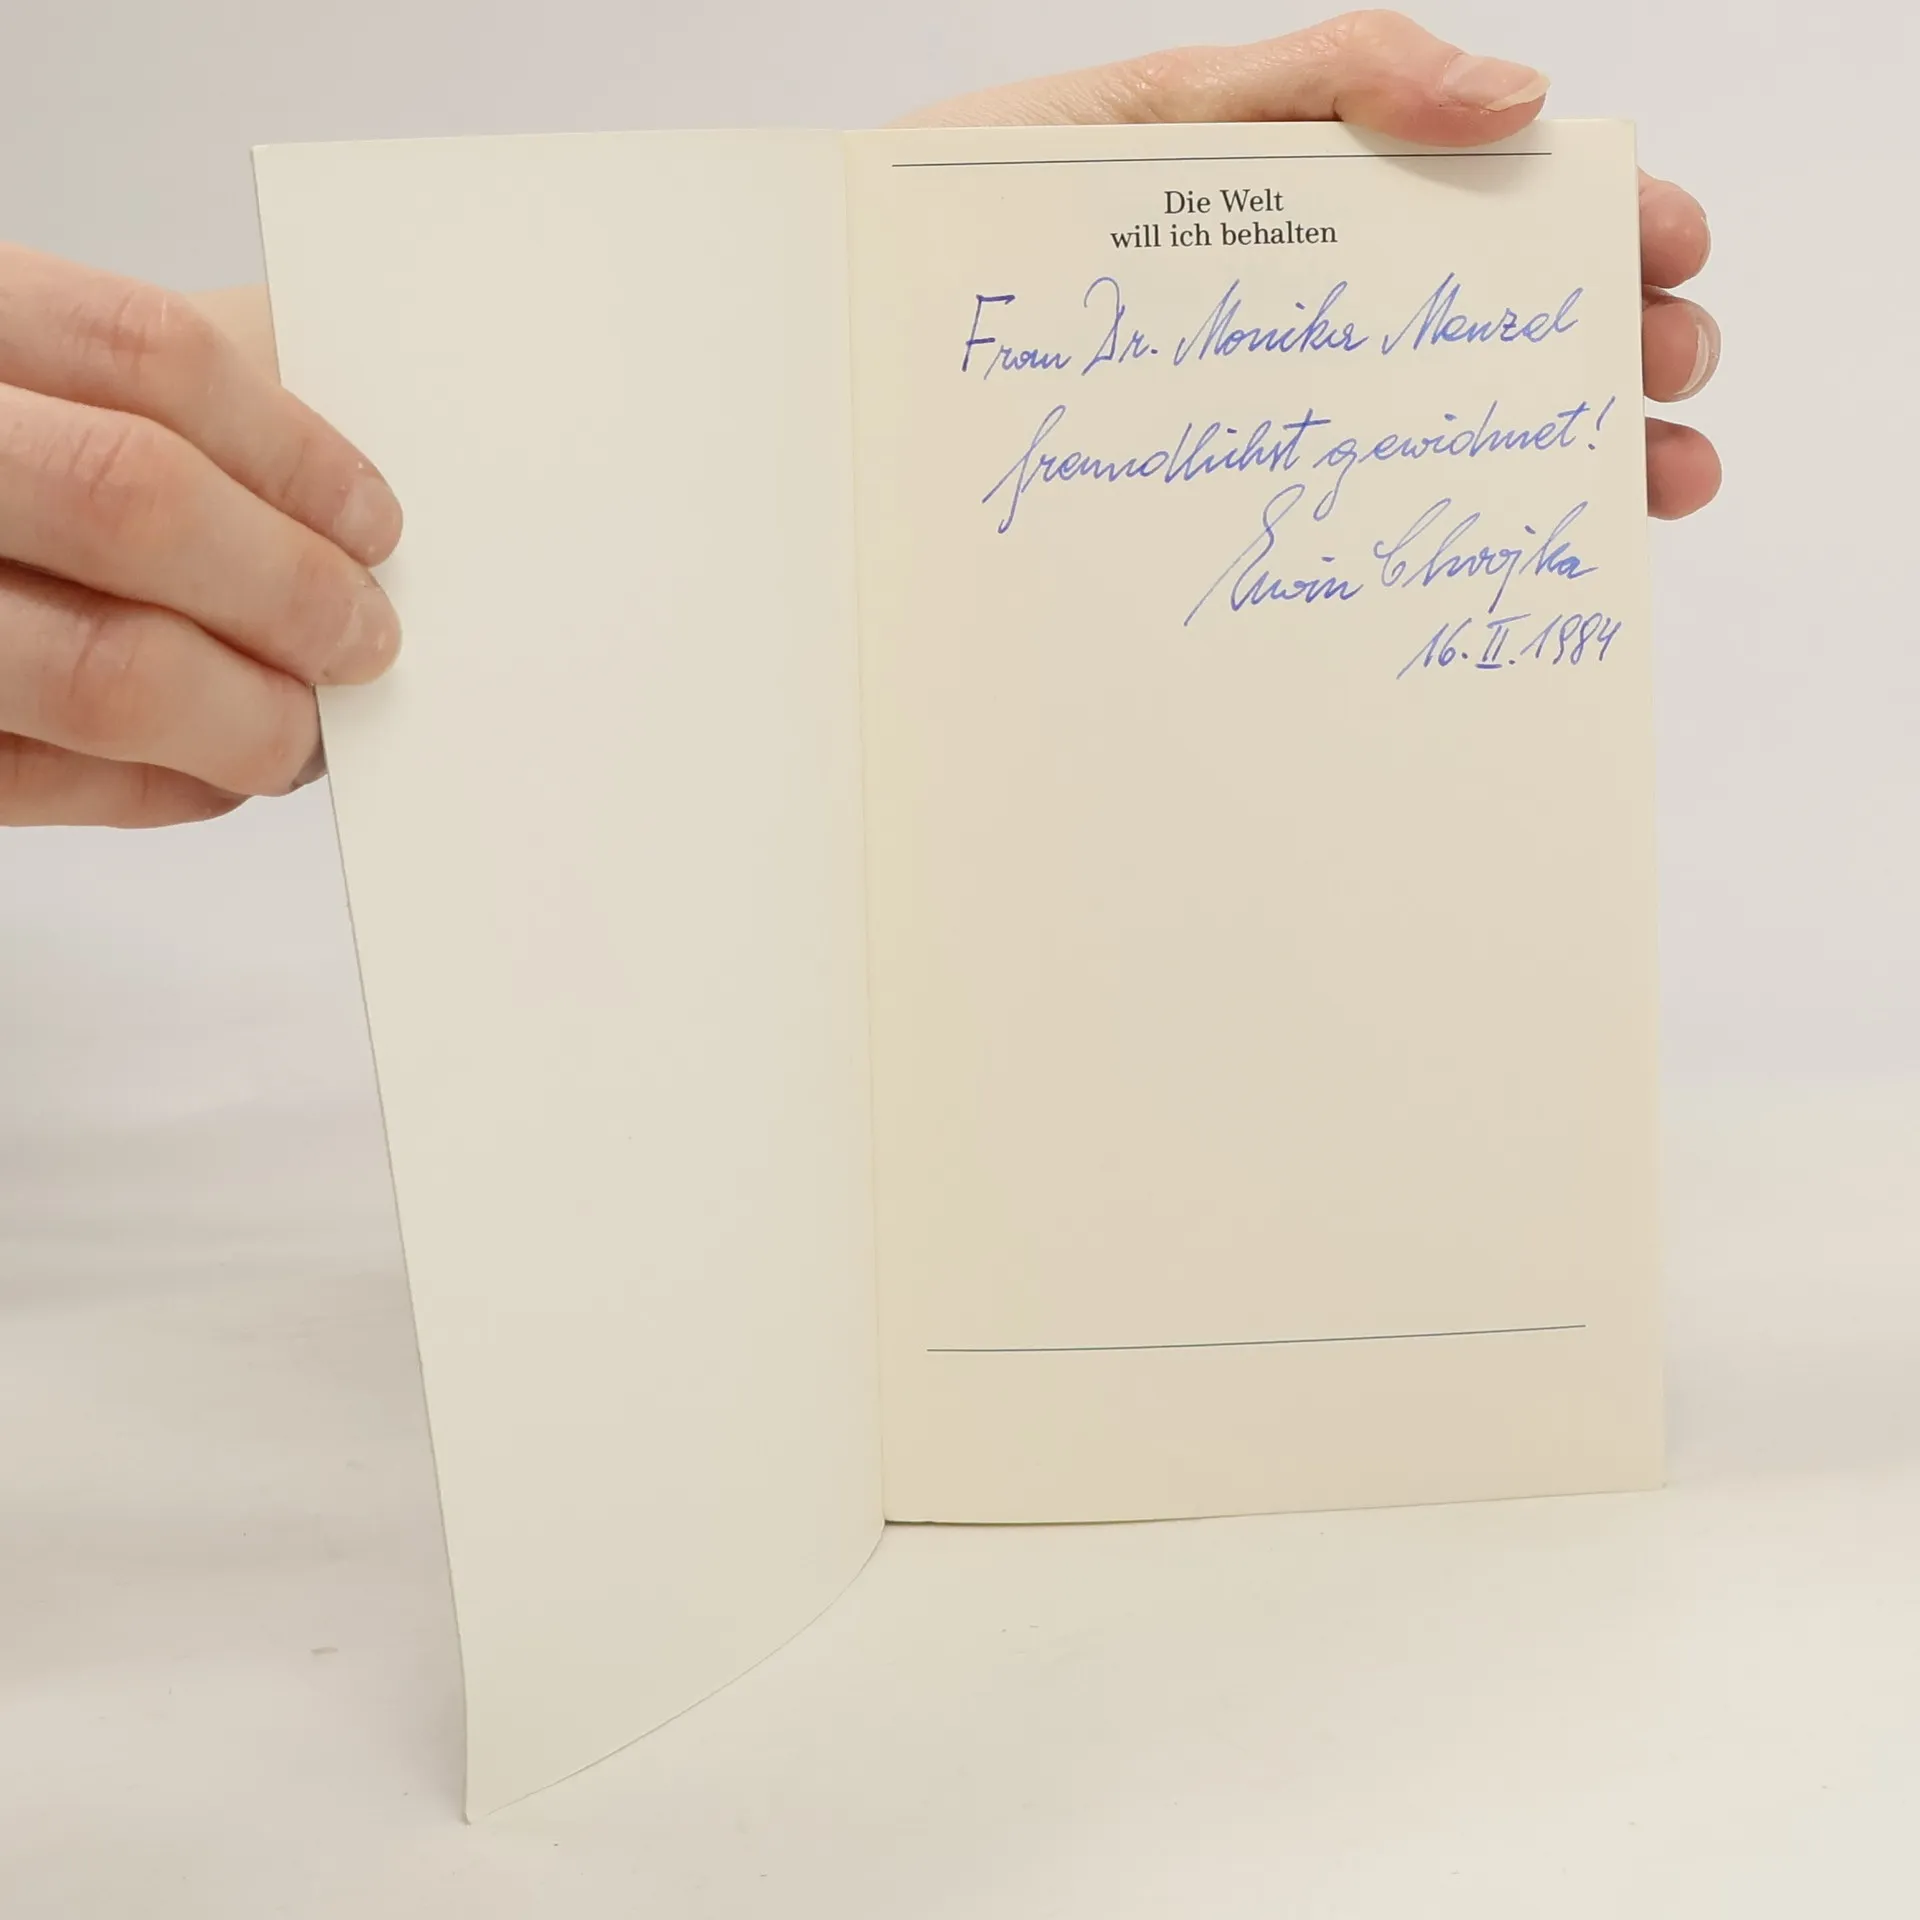 Die Welt
will ich behalten
Frau Dr. Monika Menzel
freundlichst gewidmet!
Erwin Chvojka
16. II. 1984